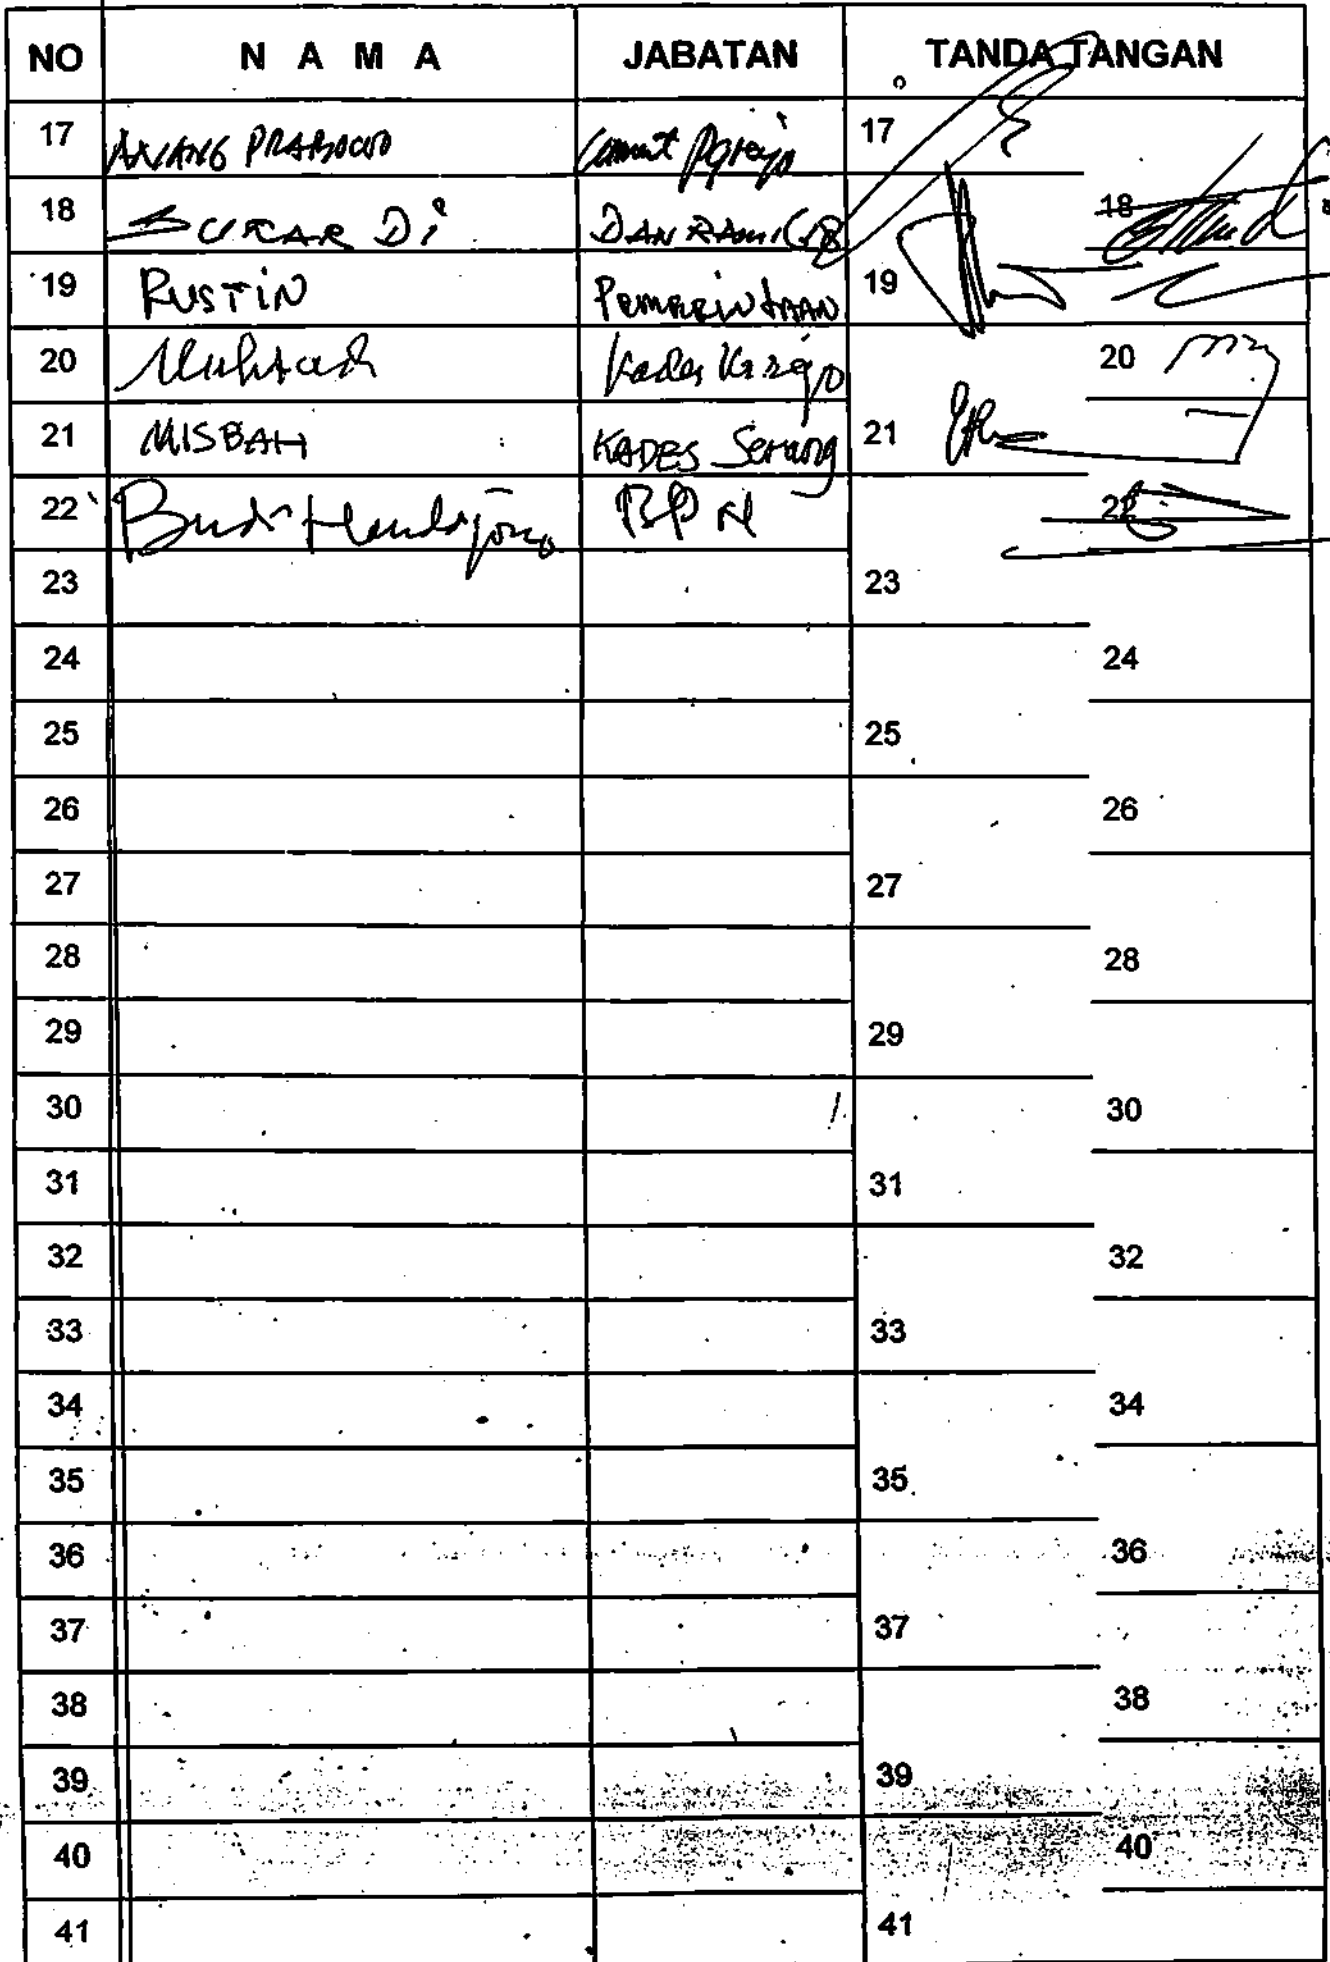 NO N A M A JABATAN TANDA TANGAN
17 ANANG PRABOWO Camat 17
18 SUKAR Di DANRAMIL 18
19 RUSTiN PEMERINTAHAN 19
20 Kades 20
21 MISBAH KADES Serang 21
22 Budi Handoyono BPN 22
23 23
24 24
25 25
26 26
27 27
28 28
29 29
30 30
31 31
32 32
33 33
34 34
35 35
36 36
37 37
38 38
39 39
40 40
41 41